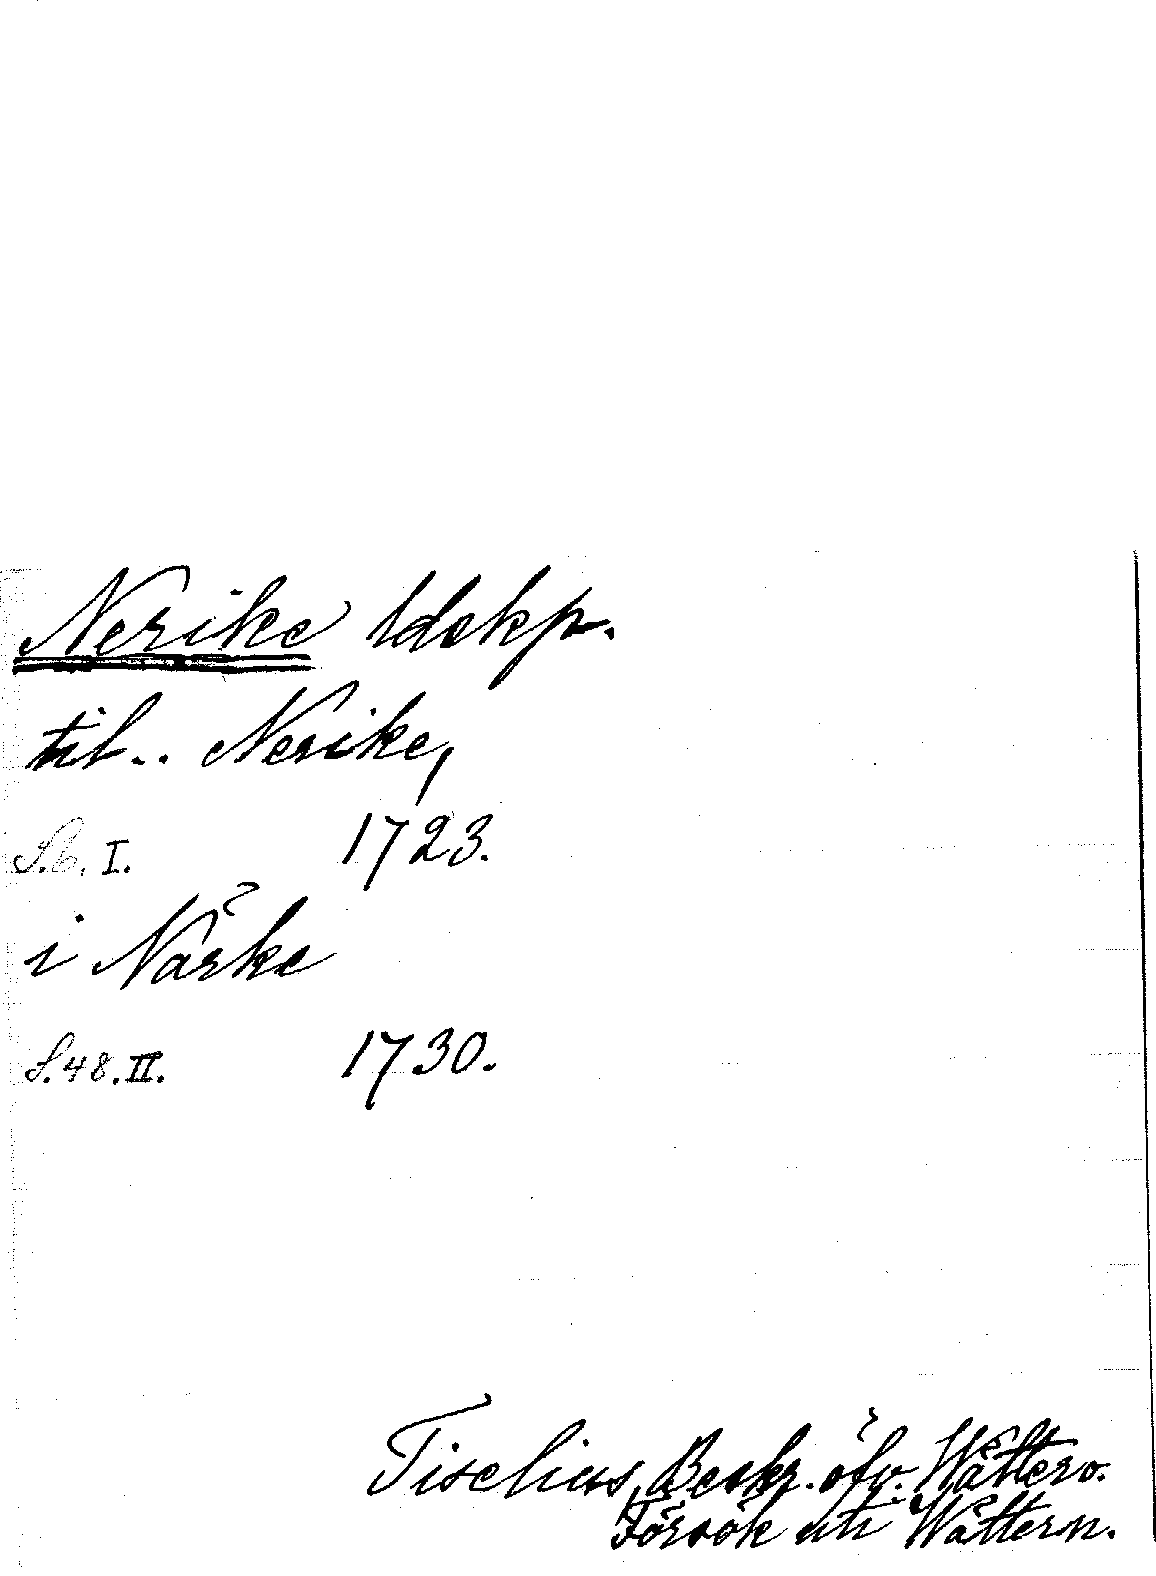 Nerike ldskp.
til.. Nerike,
S.6. I. 1723.
i Närke
S.48.II. 1730.
Tiselius, Beskr. öfv. Wätter⁠n.
Försök uti Wättern.